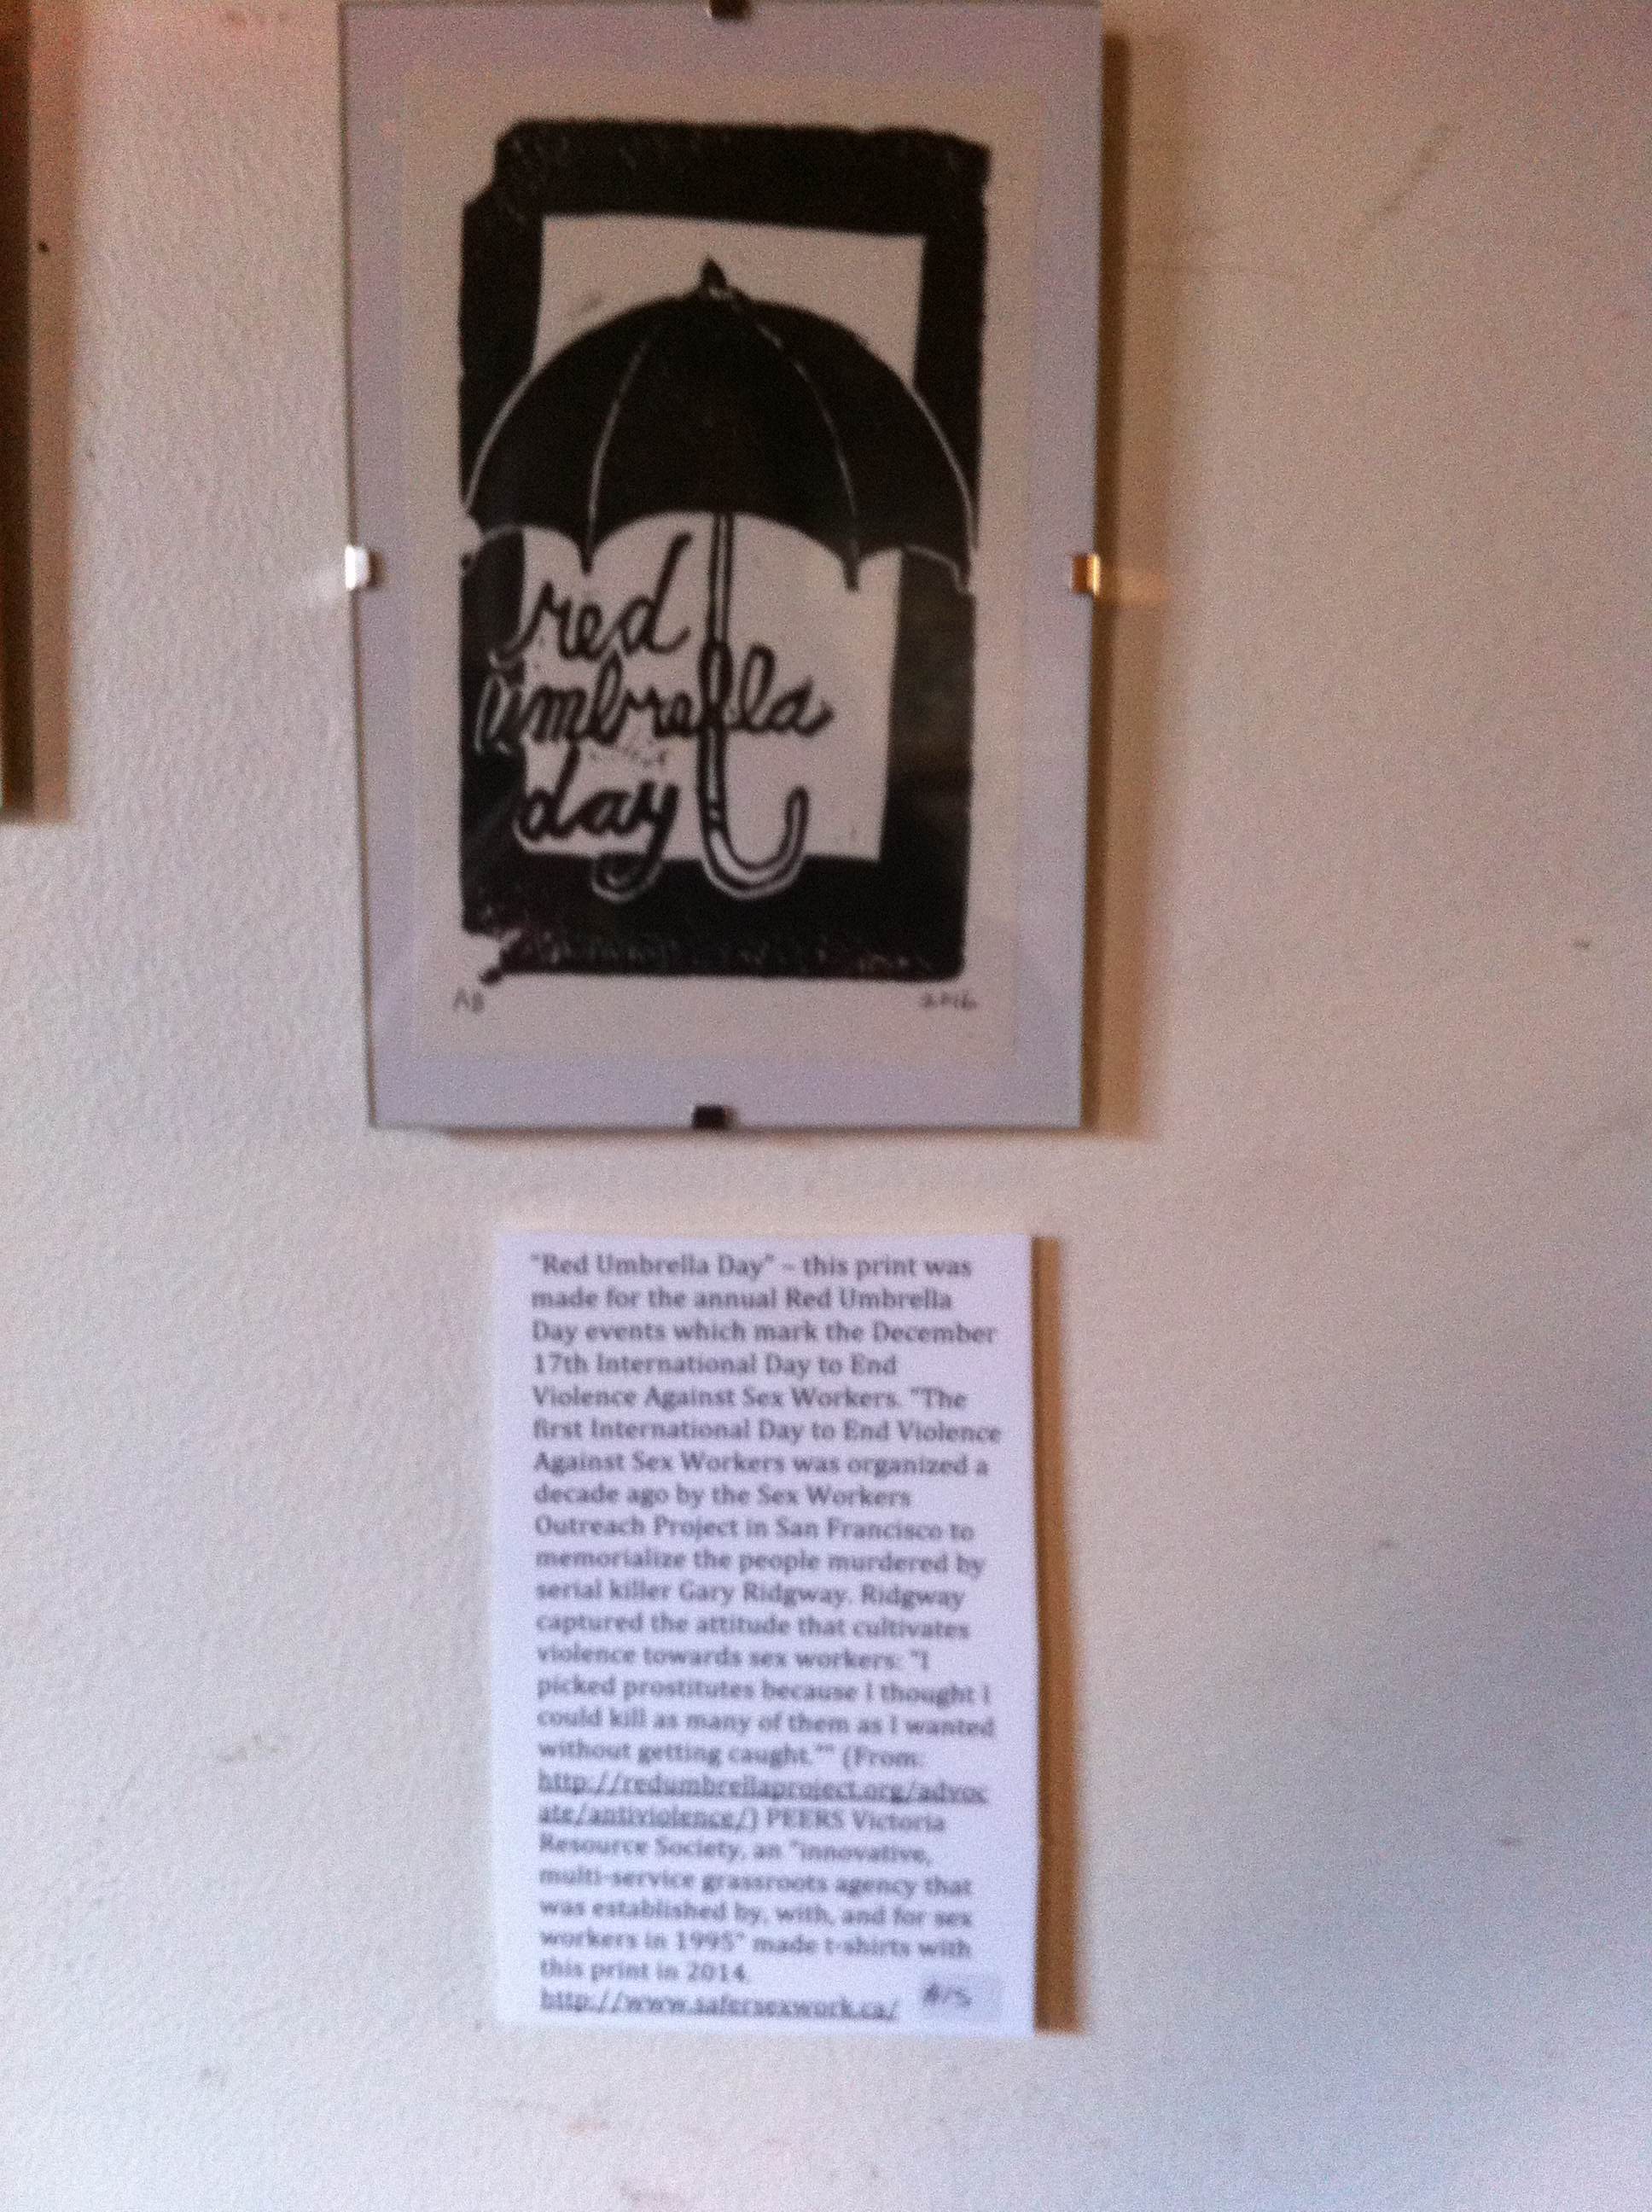 red
umbrella
day
AB 2016
"Red Umbrella Day" – this print was
made for the annual Red Umbrella
Day events which mark the December
17th International Day to End
Violence Against Sex Workers. "The
first International Day to End Violence
Against Sex Workers was organized a
decade ago by the Sex Workers
Outreach Project in San Francisco to
memorialize the people murdered by
serial killer Gary Ridgway. Ridgway
captured the attitude that cultivates
violence towards sex workers: "I
picked prostitutes because I thought I
could kill as many of them as I wanted
without getting caught."" (From:
http://redumbrellaproject.org/advoc
ate/antiviolence/) PEERS Victoria
Resource Society, an "innovative,
multi-service grassroots agency that
was established by, with, and for sex
workers in 1995" made t-shirts with
this print in 2014.
http://www.safersexwork.ca/